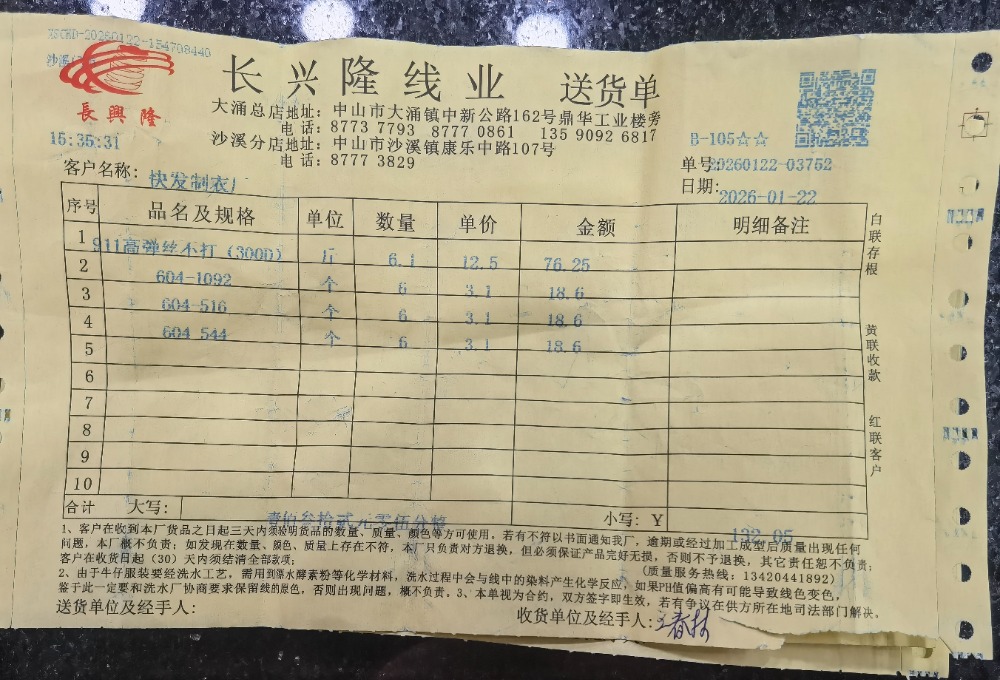 XSCKD-20260122-154708440
沙溪
長興隆
15:35:31
长兴隆线业 送货单
大涌总店地址：中山市大涌镇中新公路162号鼎华工业楼旁
电话：8773 7793 8777 0861 135 9092 6817
沙溪分店地址：中山市沙溪镇康乐中路107号
电话：8777 3829
B-105☆☆
单号20260122-03752
日期：2026-01-22
客户名称：快发制衣厂
序号 品名及规格 单位 数量 单价 金额 明细备注
1 911高弹丝不打（300D） 斤 6.1 12.5 76.25
2 604-1092 个 6 3.1 18.6
3 604-516 个 6 3.1 18.6
4 604-544 个 6 3.1 18.6
5
6
7
8
9
10
合计 大写：壹佰叁拾贰元零伍分整 小写：￥132.05
白联存根 黄联收款 红联客户
1、客户在收到本厂货品之日起三天内须验明货品的数量、质量、颜色等方可使用，若有不符以书面通知我厂，逾期或经过加工成型后质量出现任何
问题，本厂概不负责；如发现在数量、颜色、质量上存在不符，本厂只负责对方退换，但必须保证产品完好无损，否则不予退换，其它责任恕不负责；
客户在收货日起（30）天内须结清全部款项；（质量服务热线：13420441892）
2、由于牛仔服装要经洗水工艺，需用到漂水酵素粉等化学材料，洗水过程中会与线中的染料产生化学反应，如果PH值偏高有可能导致线色变色，
鉴于此一定要和洗水厂协商要求保留线的原色，否则出现问题，概不负责。3、本单视为合约，双方签字即生效，若有争议在供方所在地司法部门解决。
送货单位及经手人： 收货单位及经手人：